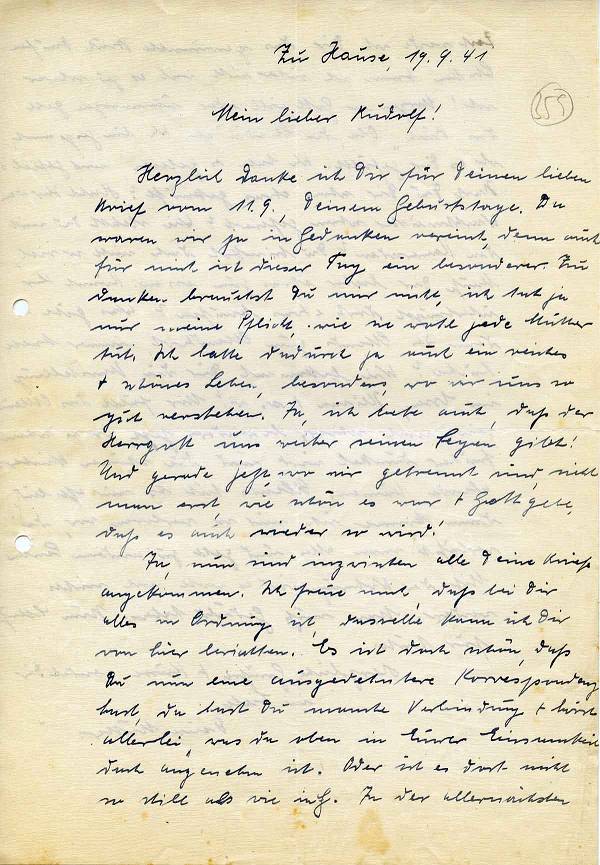 Zu Hause, 19.9.41
255
Mein lieber Rudolf!
Herzlich danke ich Dir für Deinen lieben
Brief vom 11.9., Deinem Geburtstage. Da
waren wir ja in Gedanken vereint, denn auch
für mich ist dieser Tag ein besonderer. Zu
danken brauchst Du mir nicht, ich tat ja
nur meine Pflicht, wie sie wohl jede Mutter
tut. Ich hatte dadurch ja auch ein reiches
+ schönes Leben, besonders, wo wir uns so
gut verstehen. Ja, ich bete auch, daß der
Herrgott uns weiter seinen Segen gibt!
Und gerade jetzt, wo wir getrennt sind, sieht
man erst, wie schön es war + Gott gebe,
daß es auch wieder so wird!
Ja, nun sind inzwischen alle Deine Briefe
angekommen. Ich freue mich, daß bei Dir
alles in Ordnung ist, dasselbe kann ich Dir
von hier berichten. Es ist doch schön, daß
Du nun eine ausgedehntere Korrespondenz
hast, da hast Du manche Verbindung + hörst
allerlei, was da oben in Eurer Einsamkeit
doch angenehm ist. Oder ist es dort nicht
so still als wie in G. In der allernächsten